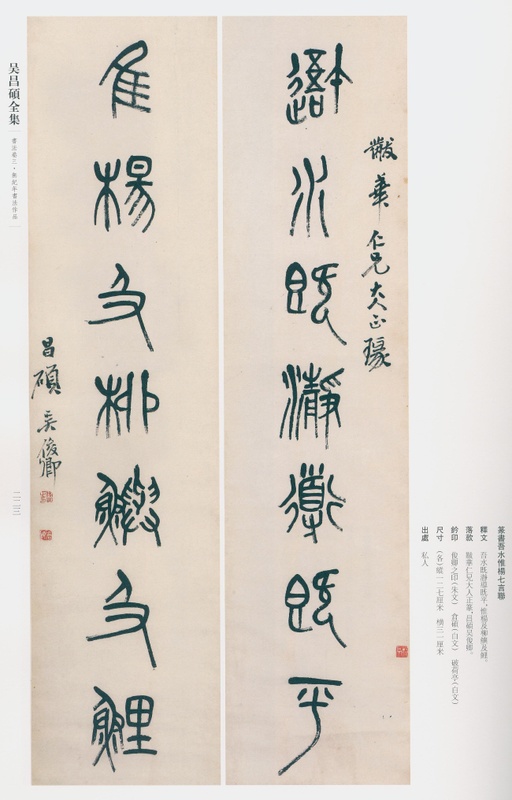 篆書吾水惟楊七言聯
釋文 吾水既瀞導既平,惟楊及柳鱮及鯉。
落款 黻華仁兄大人正篆,昌碩吳俊卿。
鈐印 俊卿之印(朱文) 倉碩(白文) 破荷亭(白文)
尺寸 (各)縱一二七厘米 橫三一厘米
出處 私人
黻華仁兄大人正瑑
䢩水既瀞導既平
隹楊及柳鱮及鯉
昌碩吳俊卿
吴昌碩全集
書法卷三·無紀年書法作品
二二三